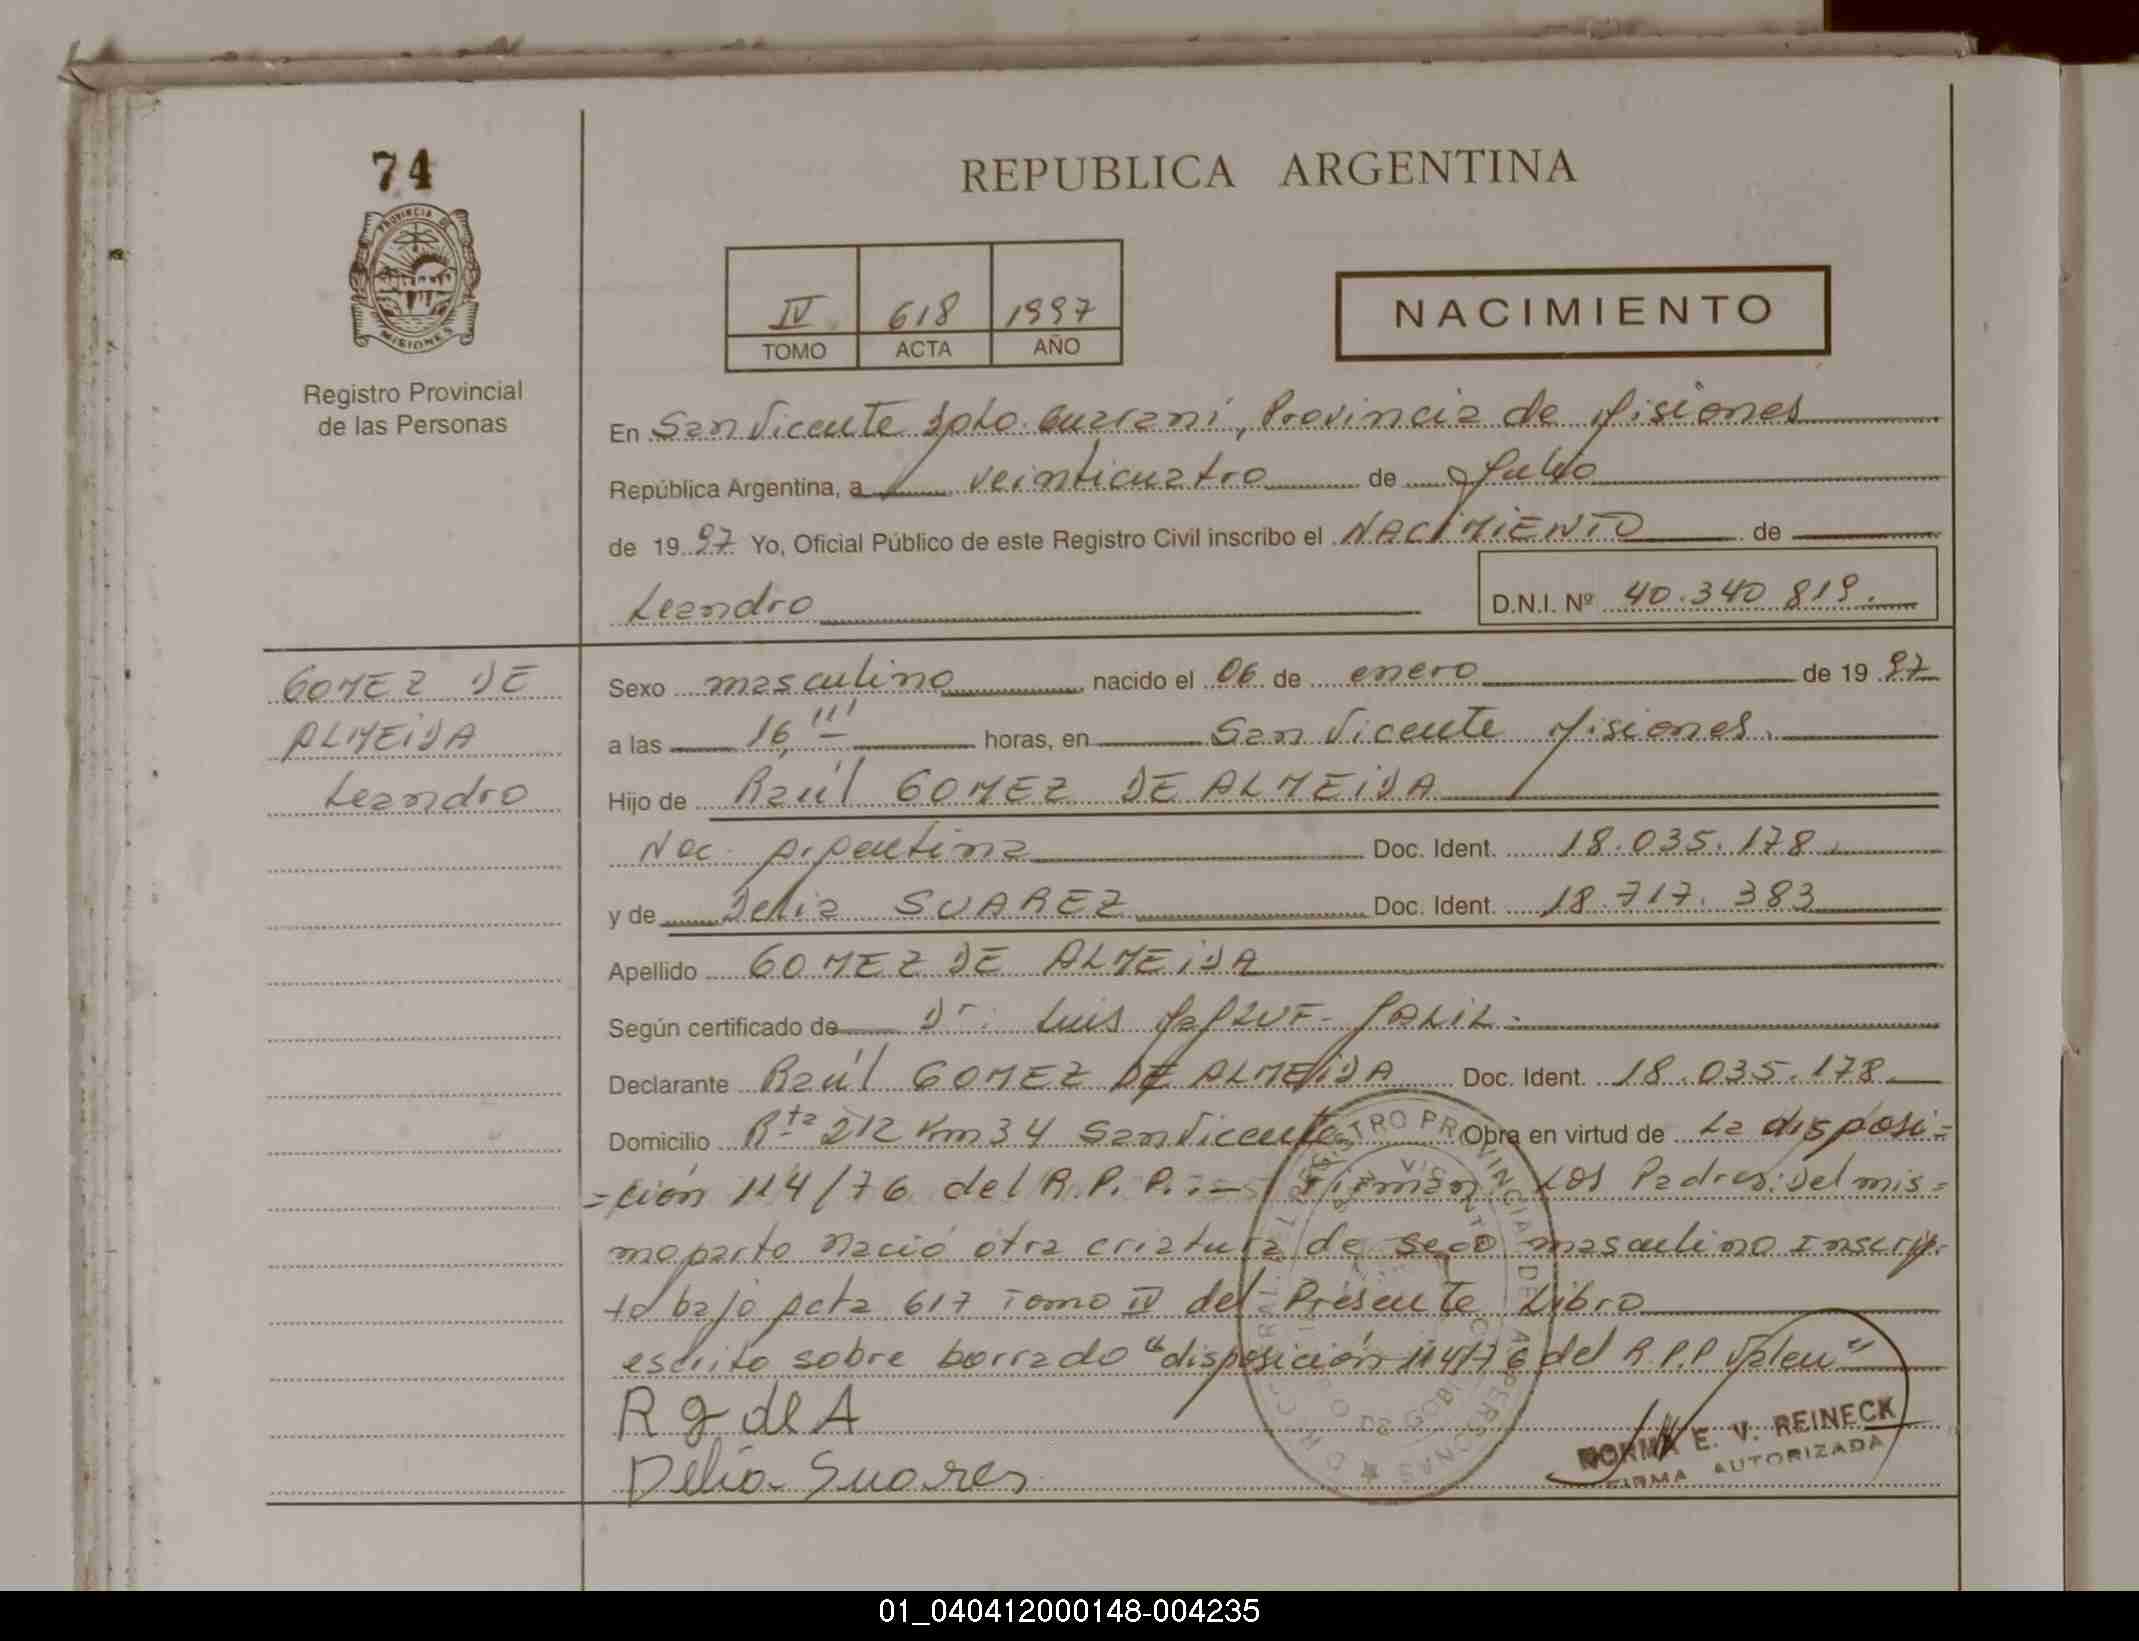 74
PROVINCIA DE
MISIONES
Registro Provincial
de las Personas
REPUBLICA ARGENTINA
IV 618 1997
TOMO ACTA AÑO
NACIMIENTO
En San Vicente Dpto. Guaraní, Provincia de Misiones
República Argentina, a veinticuatro de Julio
de 19 97 Yo, Oficial Público de este Registro Civil inscribo el NACIMIENTO de
Leandro D.N.I. Nº 40.340.819.
GOMEZ DE
ALMEIDA
Leandro
Sexo masculino nacido el 06 de enero de 19 97
a las 16 horas, en San Vicente Misiones.
Hijo de Raúl GOMEZ DE ALMEIDA
Nac. Argentina Doc. Ident. 18.035.178.
y de Delia SUAREZ Doc. Ident. 18.717.383
Apellido GOMEZ DE ALMEIDA
Según certificado de Dr. Luis
Declarante Raúl GOMEZ DE ALMEIDA Doc. Ident. 18.035.178.
Domicilio Rta 212 Km 34 San Vicente Obra en virtud de La disposi=
=ción 114/76 del R.P.P.:- Firman Los Padres: Del mis=
mo parto nació otra criatura de sexo masculino Inscrip-
to bajo Acta 617 Tomo IV del Presente Libro
escrito sobre borrado "disposición 114/76 del R.P.P Valen"
R g de A
Delia Suares
NORMA E. V. REINECK
FIRMA AUTORIZADA
01_040412000148-004235